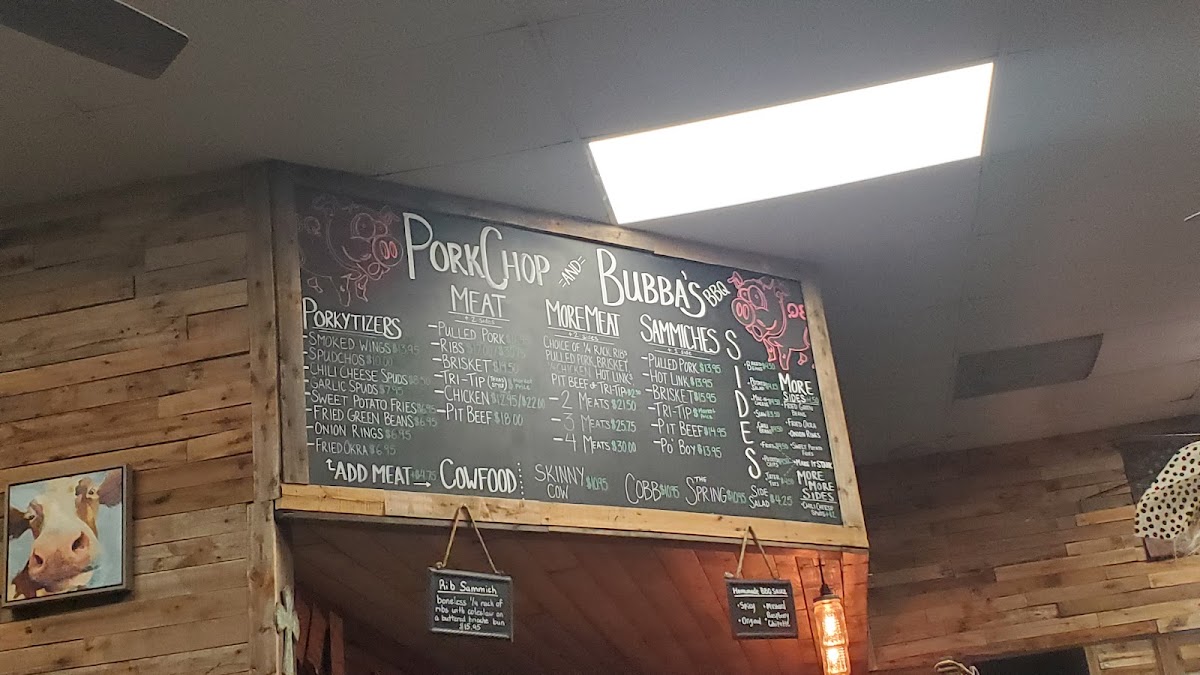 PORKCHOP -AND- BUBBA'S BBQ
PORKYTIZERS
-SMOKED WINGS $13.95
-SPUDCHOS $10.00
-CHILI CHEESE SPUDS $8.50
-GARLIC SPUDS $7.95
-SWEET POTATO FRIES $6.95
-FRIED GREEN BEANS $6.95
-ONION RINGS $6.95
-FRIED OKRA $6.95
ADD MEAT $4.75
MEAT
+ 2 SIDES
-PULLED PORK
-RIBS
-BRISKET $19.50
-TRI-TIP
-CHICKEN $12.95/$22.00
-PIT BEEF $18.00
MORE MEAT
+ 2 SIDES
CHOICE OF 1/4 RACK RIBS
PULLED PORK, BRISKET,
CHICKEN, HOT LINKS
PIT BEEF + TRI-TIP $2.50
-2 MEATS $21.50
-3 MEATS $25.75
-4 MEATS $30.00
SAMMICHES
+ 1 SIDE
-PULLED PORK $13.95
-HOT LINK $13.95
-BRISKET $15.95
-TRI-TIP
-PIT BEEF $14.95
-PO' BOY $13.95
SIDES
MORE
SIDES
FRIED GREEN
BEANS
-FRIED OKRA
-ONION RINGS
-SWEET POTATO
FRIES
MAKE IT STINK
MORE
MORE
SIDES
-CHILI CHEESE
COWFOOD:
SKINNY
COW $10.95
COBB $10.95
THE
SPRING $10.95
SIDE
SALAD $4.25
Rib Sammich
boneless 1/4 rack of
ribs with coleslaw on
a buttered brioche bun
$15.95
Homemade BBQ Sauce
-Spicy
-Original
-Mustard
Raspberry
Chipotle